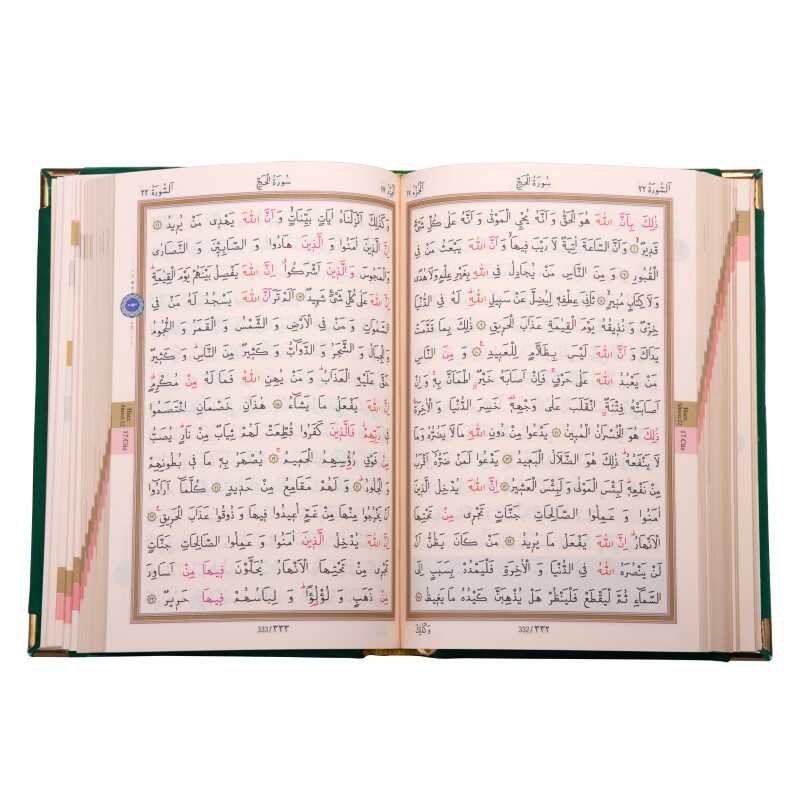 اَلسُّورَةُ ٢٢ سُورَةُ الْحَجِّ اَلْجُزْءُ ١٧
ذٰلِكَ بِاَنَّ اللّٰهَ هُوَ الْحَقُّ وَ اَنَّهُ يُحْيِي الْمَوْتٰى وَ اَنَّهُ عَلٰى كُلِّ شَيْءٍ
قَدِيرٌ ﴿٦﴾ وَ اَنَّ السَّاعَةَ اٰتِيَةٌ لَا رَيْبَ فِيهَا وَ اَنَّ اللّٰهَ يَبْعَثُ مَنْ فِي
الْقُبُورِ ﴿٧﴾ وَ مِنَ النَّاسِ مَنْ يُجَادِلُ فِي اللّٰهِ بِغَيْرِ عِلْمٍ وَلَا هُدًى
وَلَا كِتَابٍ مُنِيرٍ ﴿٨﴾ ثَانِيَ عِطْفِهِ لِيُضِلَّ عَنْ سَبِيلِ اللّٰهِ لَهُ فِي الدُّنْيَا
خِزْيٌ وَ نُذِيقُهُ يَوْمَ الْقِيٰمَةِ عَذَابَ الْحَرِيقِ ﴿٩﴾ ذٰلِكَ بِمَا قَدَّمَتْ
يَدَاكَ وَ اَنَّ اللّٰهَ لَيْسَ بِظَلَّامٍ لِلْعَبِيدِ ﴿١٠﴾ وَ مِنَ النَّاسِ
مَنْ يَعْبُدُ اللّٰهَ عَلٰى حَرْفٍ فَاِنْ اَصَابَهُ خَيْرٌ اطْمَاَنَّ بِهِ وَ اِنْ
اَصَابَتْهُ فِتْنَةٌ انْقَلَبَ عَلٰى وَجْهِهِ خَسِرَ الدُّنْيَا وَ الْاٰخِرَةَ
ذٰلِكَ هُوَ الْخُسْرَانُ الْمُبِينُ ﴿١١﴾ يَدْعُوا مِنْ دُونِ اللّٰهِ مَا لَا يَضُرُّهُ وَمَا
لَا يَنْفَعُهُ ذٰلِكَ هُوَ الضَّلَالُ الْبَعِيدُ ﴿١٢﴾ يَدْعُوا لَمَنْ ضَرُّهُ اَقْرَبُ
مِنْ نَفْعِهِ لَبِئْسَ الْمَوْلٰى وَ لَبِئْسَ الْعَشِيرُ ﴿١٣﴾ اِنَّ اللّٰهَ يُدْخِلُ الَّذِينَ
اٰمَنُوا وَ عَمِلُوا الصَّالِحَاتِ جَنَّاتٍ تَجْرِي مِنْ تَحْتِهَا
الْاَنْهَارُ اِنَّ اللّٰهَ يَفْعَلُ مَا يُرِيدُ ﴿١٤﴾ مَنْ كَانَ يَظُنُّ اَنْ
لَنْ يَنْصُرَهُ اللّٰهُ فِي الدُّنْيَا وَ الْاٰخِرَةِ فَلْيَمْدُدْ بِسَبَبٍ اِلَى
السَّمَاءِ ثُمَّ لْيَقْطَعْ فَلْيَنْظُرْ هَلْ يُذْهِبَنَّ كَيْدُهُ مَا يَغِيظُ ﴿١٥﴾
332/٣٣٢ وَكَذٰلِكَ
Hac:
17.Cüz
اَلسُّورَةُ ٢٢ سُورَةُ الْحَجِّ ١٧
وَ كَذٰلِكَ اَنْزَلْنَاهُ اٰيَاتٍ بَيِّنَاتٍ وَ اَنَّ اللّٰهَ يَهْدِي مَنْ يُرِيدُ ﴿١٦﴾
اِنَّ الَّذِينَ اٰمَنُوا وَ الَّذِينَ هَادُوا وَ الصَّابِئِينَ وَ النَّصَارٰى
وَ الْمَجُوسَ وَ الَّذِينَ اَشْرَكُوا اِنَّ اللّٰهَ يَفْصِلُ بَيْنَهُمْ يَوْمَ الْقِيٰمَةِ
اِنَّ اللّٰهَ عَلٰى كُلِّ شَيْءٍ شَهِيدٌ ﴿١٧﴾ اَلَمْ تَرَ اَنَّ اللّٰهَ يَسْجُدُ لَهُ مَنْ فِي
السَّمٰوَاتِ وَ مَنْ فِي الْاَرْضِ وَ الشَّمْسُ وَ الْقَمَرُ وَ النُّجُومُ
وَ الْجِبَالُ وَ الشَّجَرُ وَ الدَّوَابُّ وَ كَثِيرٌ مِنَ النَّاسِ وَ كَثِيرٌ
حَقَّ عَلَيْهِ الْعَذَابُ وَ مَنْ يُهِنِ اللّٰهُ فَمَا لَهُ مِنْ مُكْرِمٍ
اِنَّ اللّٰهَ يَفْعَلُ مَا يَشَاءُ ﴿١٨﴾ هٰذَانِ خَصْمَانِ اخْتَصَمُوا
فِي رَبِّهِمْ فَالَّذِينَ كَفَرُوا قُطِّعَتْ لَهُمْ ثِيَابٌ مِنْ نَارٍ يُصَبُّ
مِنْ فَوْقِ رُؤُسِهِمُ الْحَمِيمُ ﴿١٩﴾ يُصْهَرُ بِهِ مَا فِي بُطُونِهِمْ
وَ الْجُلُودُ ﴿٢٠﴾ وَ لَهُمْ مَقَامِعُ مِنْ حَدِيدٍ ﴿٢١﴾ كُلَّمَا اَرَادُوا
اَنْ يَخْرُجُوا مِنْهَا مِنْ غَمٍّ اُعِيدُوا فِيهَا وَ ذُوقُوا عَذَابَ الْحَرِيقِ ﴿٢٢﴾
اِنَّ اللّٰهَ يُدْخِلُ الَّذِينَ اٰمَنُوا وَ عَمِلُوا الصَّالِحَاتِ جَنَّاتٍ
تَجْرِي مِنْ تَحْتِهَا الْاَنْهَارُ يُحَلَّوْنَ فِيهَا مِنْ اَسَاوِرَ
مِنْ ذَهَبٍ وَ لُؤْلُؤًا وَ لِبَاسُهُمْ فِيهَا حَرِيرٌ ﴿٢٣﴾
333/٣٣٣
Hac:
17.Cüz